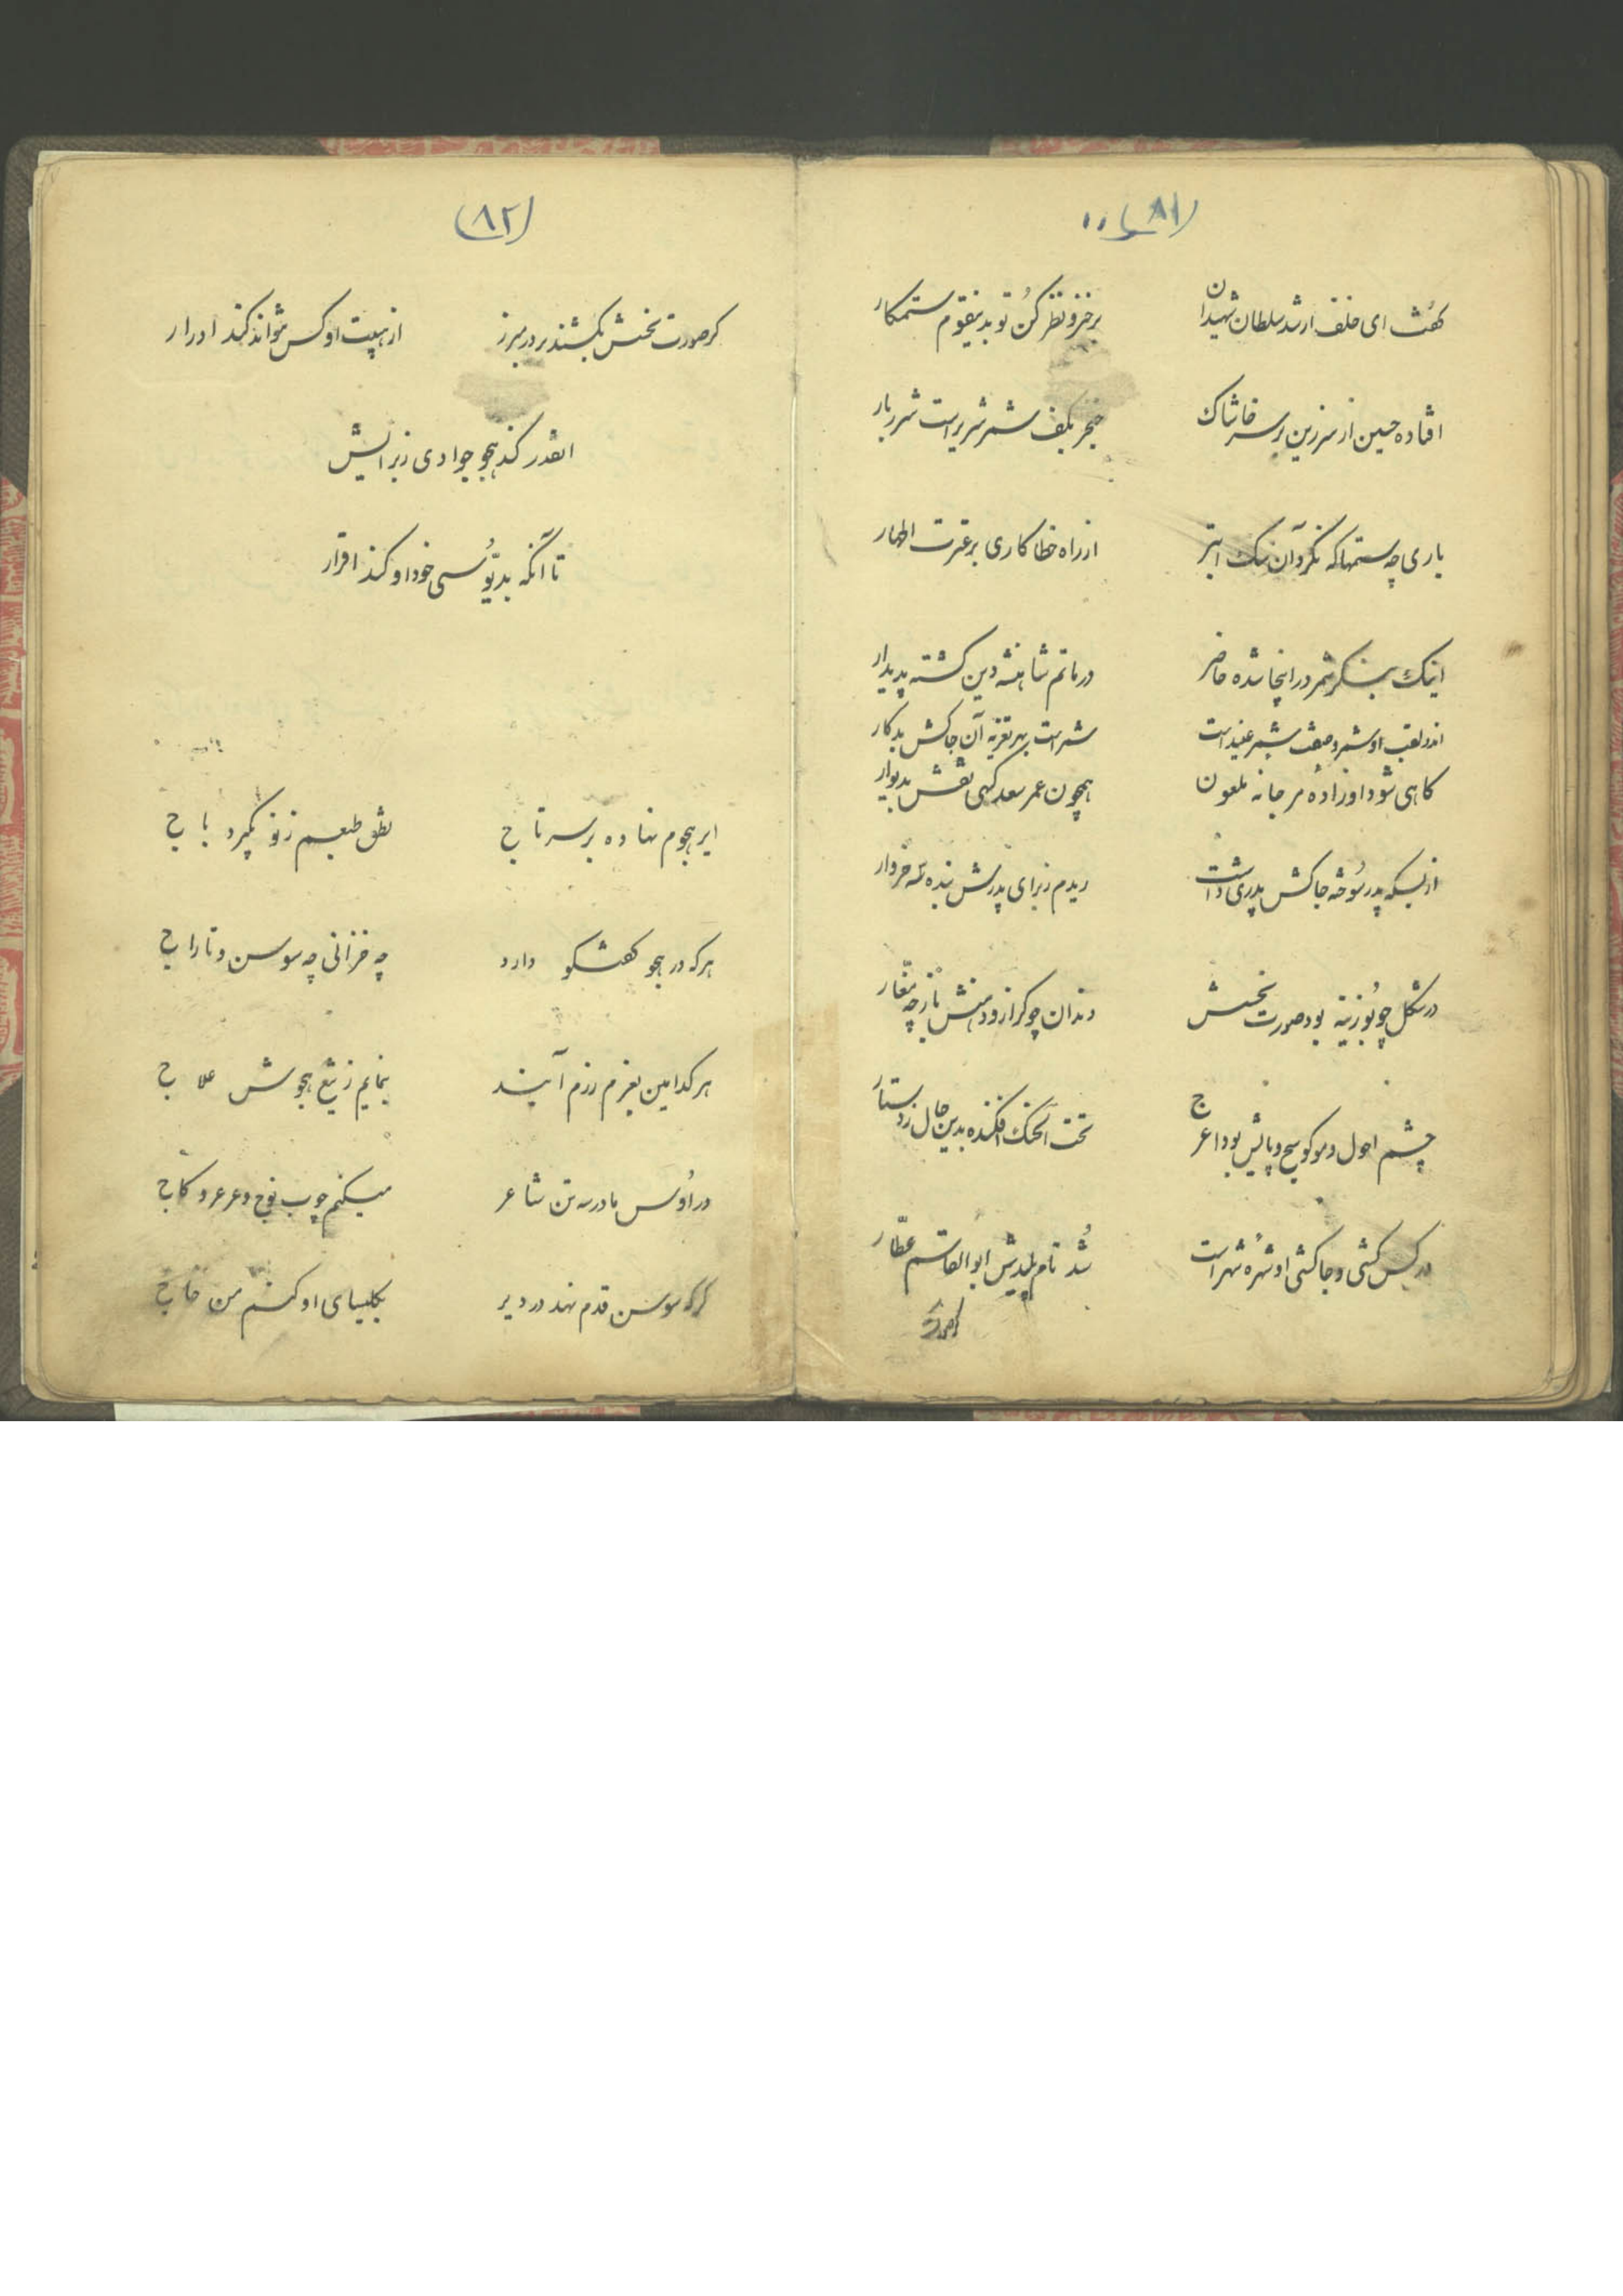 (۸۱)
گفت ای خلف ارشد سلطان شهیدان برخیز و نظر کن تو بدینقوم ستمکار
افتاده حسین از سر زین بر سر خاشاک خنجر بکف شمر شریر است شرربار
باری چه ستمها که نکرد آن سک ابتر از راه خطاکاری بر عترت اطهار
اینک بنگر شمر در اینجا شده حاضر در ماتم شاهنشه دین گشته پدیدار
اندر لقب او شمر و صفت شمر عنید است شمر است بهر تعزیه آن جاکش بدکار
گاهی شود او زادهٔ مرجانه ملعون همچون عمر سعد کهی نقش بدیوار
از بسکه پدر سوخته جاکش پدری داشت ریدم ز برای پدرش بنده سه خروار
در شکل چو بوزینه بود صورت نحسش دندان چو کراز و دهنش باز چه غار
چشم احول و مو کوسج و پایش بود اعرج تحت الحنک افکنده بدین حال ز دستار
در کس کشی و جاکشی او شهرهٔ شهر است شد نام پلیدیش ابوالقاسم عطّار
(۸۲)
کر صورت نحسش بکشند بر در مبرز از هیبت او کس نتواند کند ادرار
انقدر کند هجو جوادی ز برایش
تا آنکه بدیّوسی خود او کند اقرار
ایر هجوم نهاده بر سر تاج نطق طبعم ز نو بگیرد باج
هر که در هجو گفتگو دارد چه خزانی چه سوسن و تاراج
هر کدامین بعزم رزم آیند بنمایم ز تیغ هجوش علاج
در اوس مادر سه تن شاعر میکنم چوب فوج و عرعر و کاج
کر که سوسن قدم نهد در دیر بکلیسای او کنم من خاج